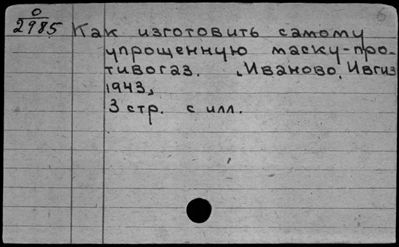 О
2985 Как изготовить самому
упрощенную маску-про-
тивогаз. Иваново, Ивгиз
1943,
3 стр. с илл.